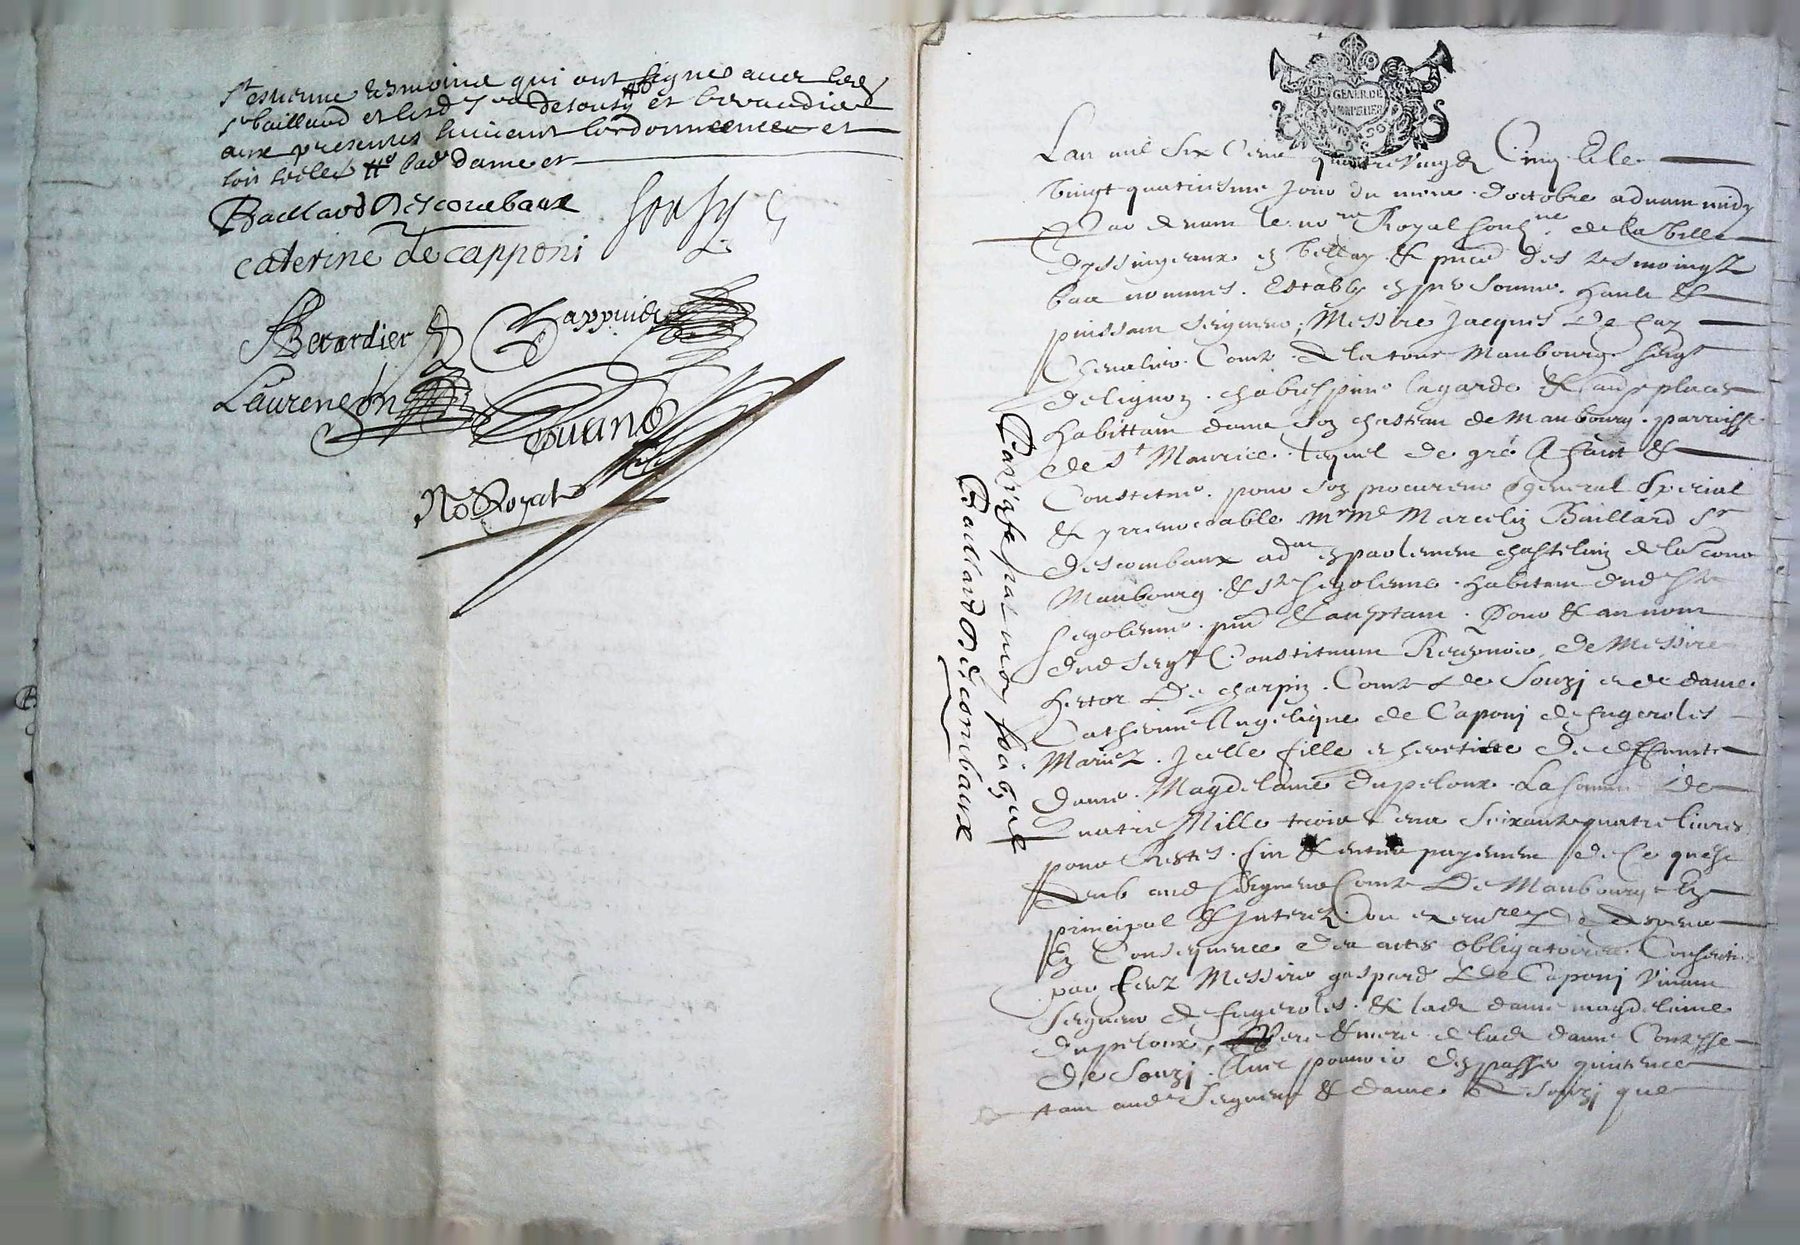 St estienne tesmoins qui ont signes avec led
Sr baillard et lesd Srs de sousy et berardier
aux presentes suivant lordonnence et
Baillard Descombaux sousy
caterine de capponi
Berardier Chappuis
Laurenson
Durano
No Royal
GENER DE
MONPELIER
Lan mil six cens quatre vingtz Cinq & le
vingt quatriesme jour du mois doctobre advant midy
Par devant le nore Royal de la ville
dyssingeaux en vellay & pnce des tesmoingz
bas nommes. Estably en personne. hault &
puissant seigneur. Messire Jacques De fay
Chevalier. Comte de latour Maubourg seigr
de lignon. chabrespine lagarde & autres places
habittant dans son chasteau de Maubourg. parroisse
de St Maurice. lequel de gré A fait &
Constitue. pour son procureur general special
& yrrevocable Mr Me Marcelin Baillard Sr
descombaux advat en parlement chastelain de la Tour
Maubourg. & Ste segolenne. habitant aud Ste
segolenne. pnt & acceptant. Pour & au nom
dud seigr Constituant Recepvoir. de Messire
hector De charpin. Comte de Souzi et de dame
Catherine Angelique de Caponi de fugeroles
Mariez. Icelle fille et heretiere de deffuncte
dame. Magdelaine dupeloux. La somme De
Quatre Mille trois Cens soixante quatre livres
pour Restes. fin & entier payement de Ce quest
deub aud seigneur Comte De Maubourg En
principal & Interez
En Consequence des actes obligatoires. Consentis
par feuz Messire gaspard de Caponi vivant
seigneur de fugeroles. & lade dame magdelaine
dupeloux, Pere & mere de lade dame Contesse
de Souzi. Avec pouvoir den passer quittence
tant aude seigneur & dame de Souzi que
Baillard Descombaux